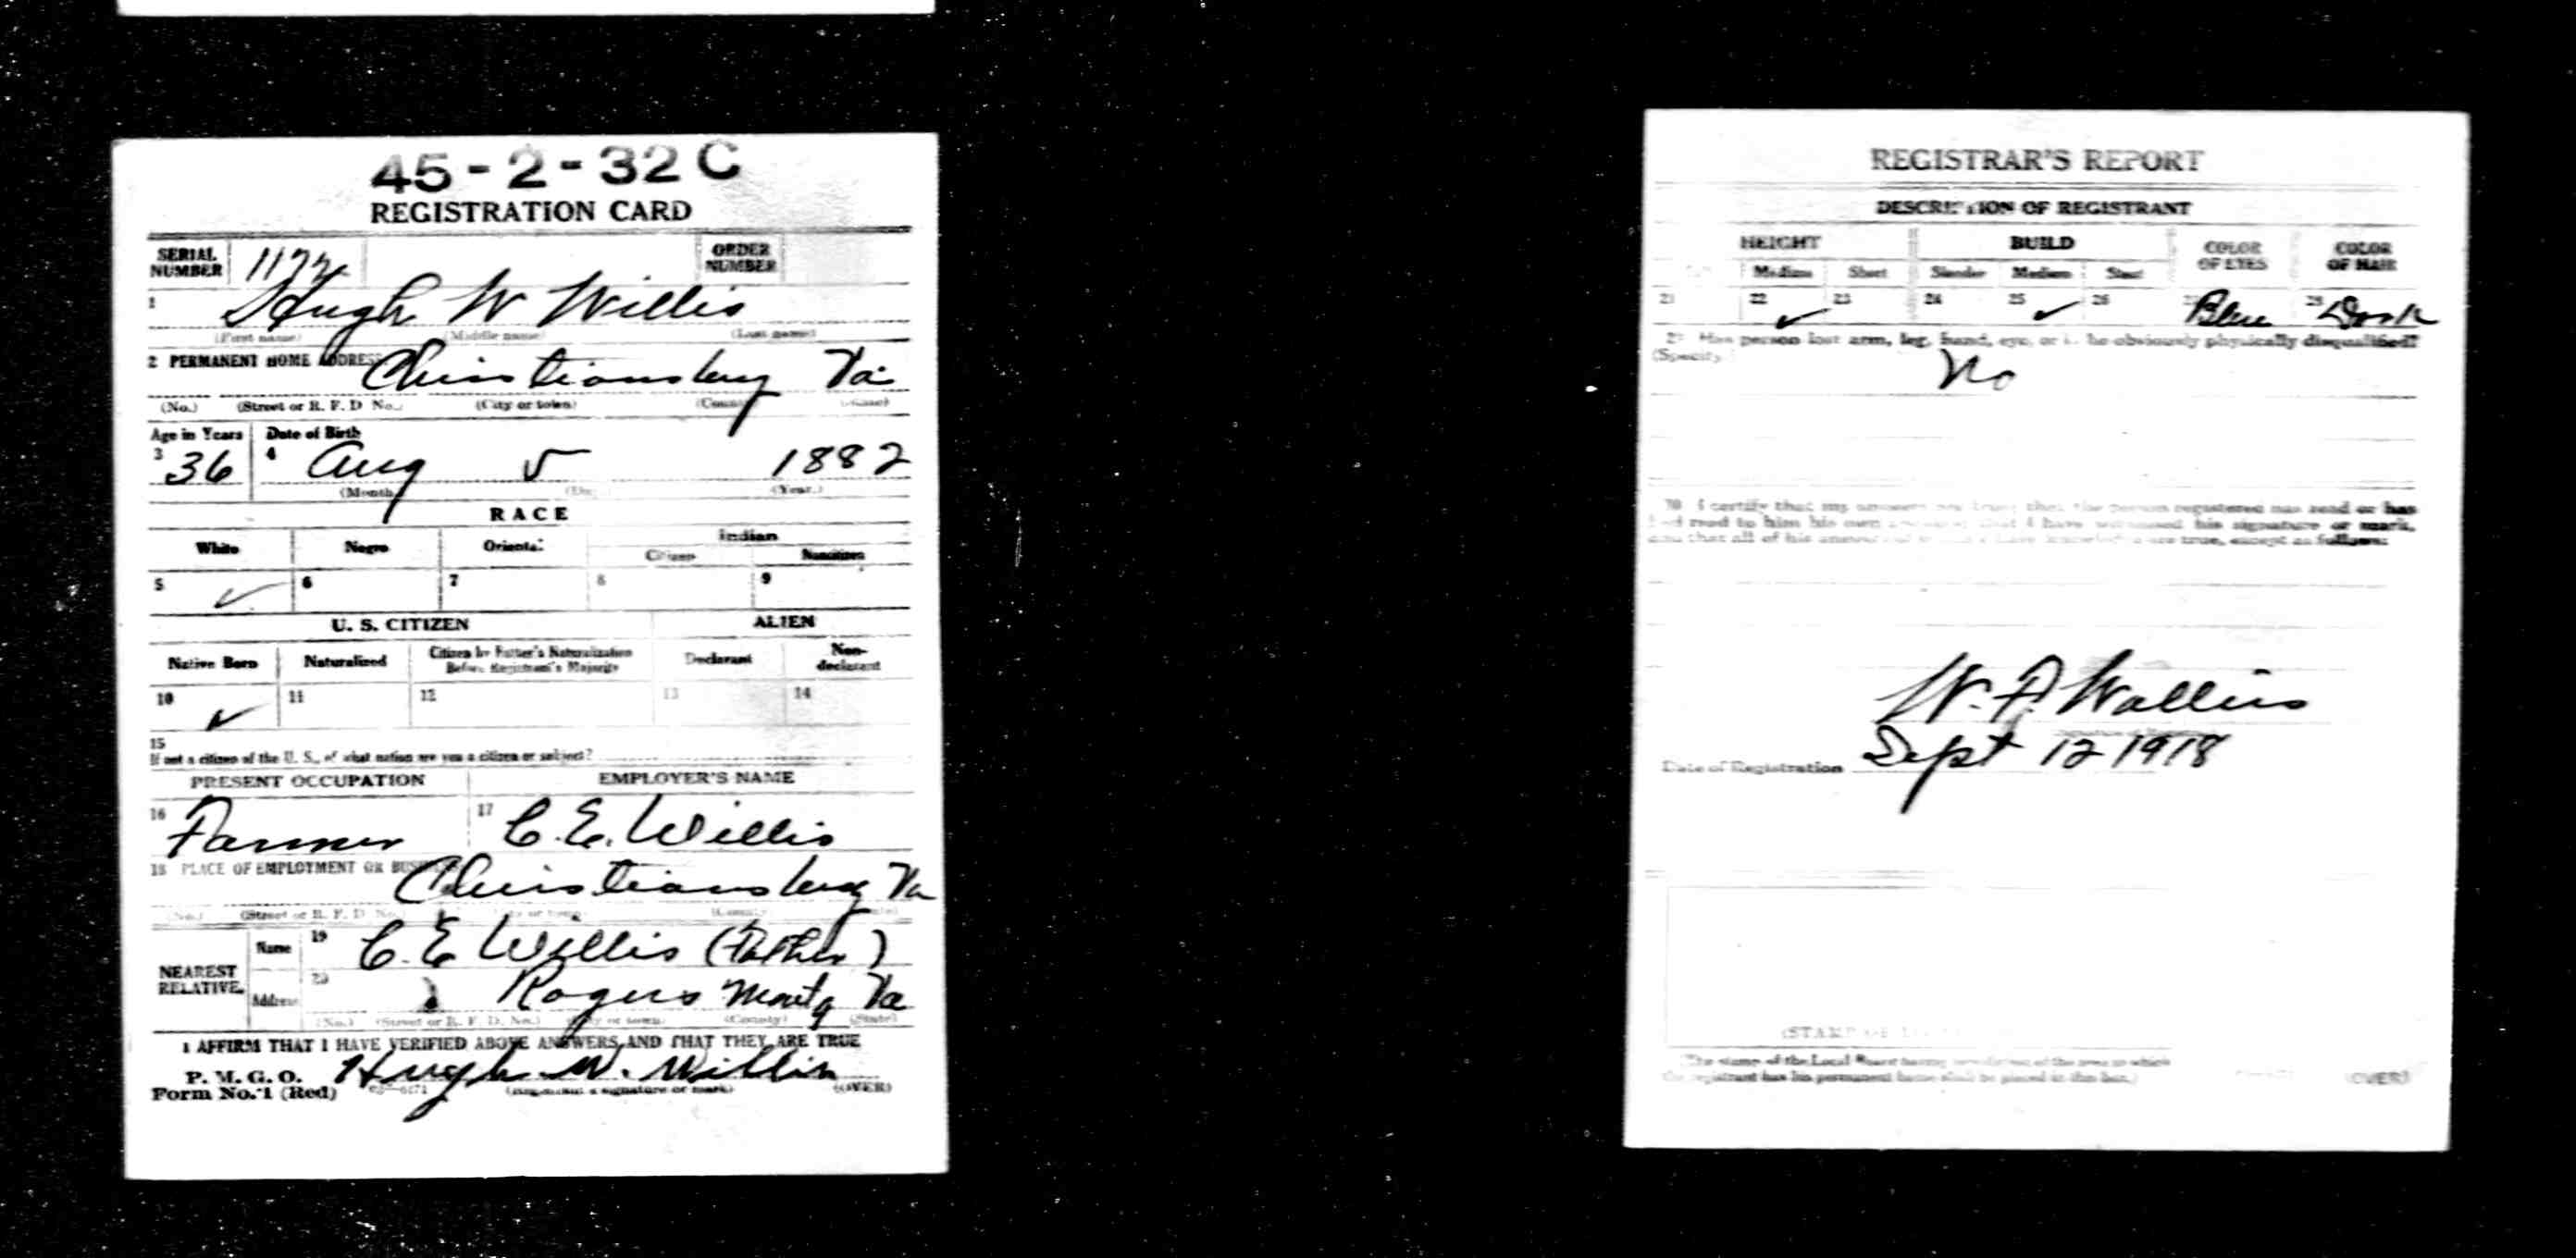 45-2-32 C
REGISTRATION CARD
SERIAL NUMBER ORDER NUMBER
1 Hugh W Willis
(First name) (Middle name) (Last name)
2 PERMANENT HOME ADDRESS Christiansburg Va
(No.) (Street or R. F. D. No.) (City or town) (County) (State)
Age in Years Date of Birth
3 36 4 Aug 5 1882
(Month) (Day) (Year.)
RACE
White Negro Oriental Indian
Citizen Noncitizen
5 ✓ 6 7 8 9
U. S. CITIZEN ALIEN
Native Born Naturalized Citizen by Father's Naturalization Before Registrant's Majority Declarant Non-declarant
10 ✓ 11 12 13 14
15
If not a citizen of the U. S., of what nation are you a citizen or subject?
PRESENT OCCUPATION EMPLOYER'S NAME
16 Farmer 17 C. E. Willis
18 PLACE OF EMPLOYMENT OR BUSINESS Christiansburg Va
(No.) (Street or R. F. D. No.) (City or town) (County) (State)
NEAREST RELATIVE Name 19 C. E Willis (Father)
Address 20 Rogers Montg Va
(No.) (Street or R. F. D. No.) (City or town) (County) (State)
I AFFIRM THAT I HAVE VERIFIED ABOVE ANSWERS AND THAT THEY ARE TRUE
P. M. G. O. Hugh W. Willis
Form No. 1 (Red) (Registrant's signature or mark) (OVER)
REGISTRAR'S REPORT
DESCRIPTION OF REGISTRANT
HEIGHT BUILD COLOR OF EYES COLOR OF HAIR
Medium Short Slender Medium Stout
21 22 ✓ 23 24 25 ✓ 26 27 Blue 28 Dark
29 Has person lost arm, leg, hand, eye, or is he obviously physically disqualified?
(Specify) No
30 I certify that my answers are true; that the person registered has read or has
had read to him his own answers; that I have witnessed his signature or mark,
and that all of his answers of which I have knowledge are true, except as follows:
Date of Registration Sept 12 1918
(STAMP OF
The stamp of the Local Board having jurisdiction of the area in which
the registrant has his permanent home shall be placed in this box.)
(OVER)